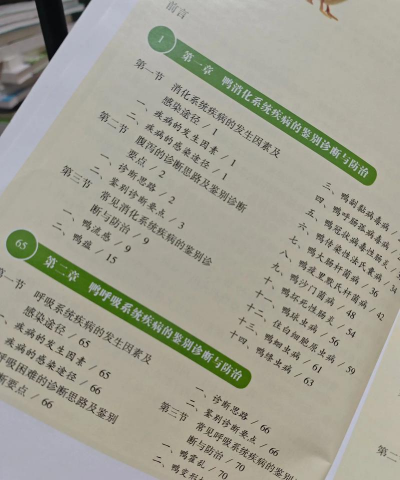 前言
1
第一章 鸭消化系统疾病的鉴别诊断与防治
第一节 消化系统疾病的发生因素及
感染途径 / 1
一、疾病的发生因素 / 1
二、疾病的感染途径 / 1
第二节 腹泻的诊断思路及鉴别诊断
要点 / 2
一、诊断思路 / 2
二、鉴别诊断要点 / 3
第三节 常见消化系统疾病的鉴别诊
断与防治 / 9
一、鸭流感 / 9
二、鸭瘟 / 15
三、鸭副黏病毒病 /
四、鸭呼肠孤病毒病
五、鸭冠状病毒性肠炎
六、鸭传染性法氏囊病 / 34
七、鸭大肠杆菌病 / 36
八、鸭疫里默氏杆菌病 / 42
九、鸭沙门菌病 / 48
十、鸭坏死性肠炎 / 54
十一、鸭球虫病 / 56
十二、住白细胞原虫病 / 59
十三、鸭绦虫病 / 61
十四、鸭蛔虫病 / 63
65
第二章 鸭呼吸系统疾病的鉴别诊断与防治
第一节 呼吸系统疾病的发生因素及
感染途径 / 65
一、疾病的发生因素 / 65
疾病的感染途径 / 66
呼吸困难的诊断思路及鉴别
断要点 / 66
一、诊断思路 / 66
二、鉴别诊断要点 / 66
第三节 常见呼吸系统疾病的鉴别
断与防治 / 70
一、鸭霍乱 / 70
二、鸭
第二